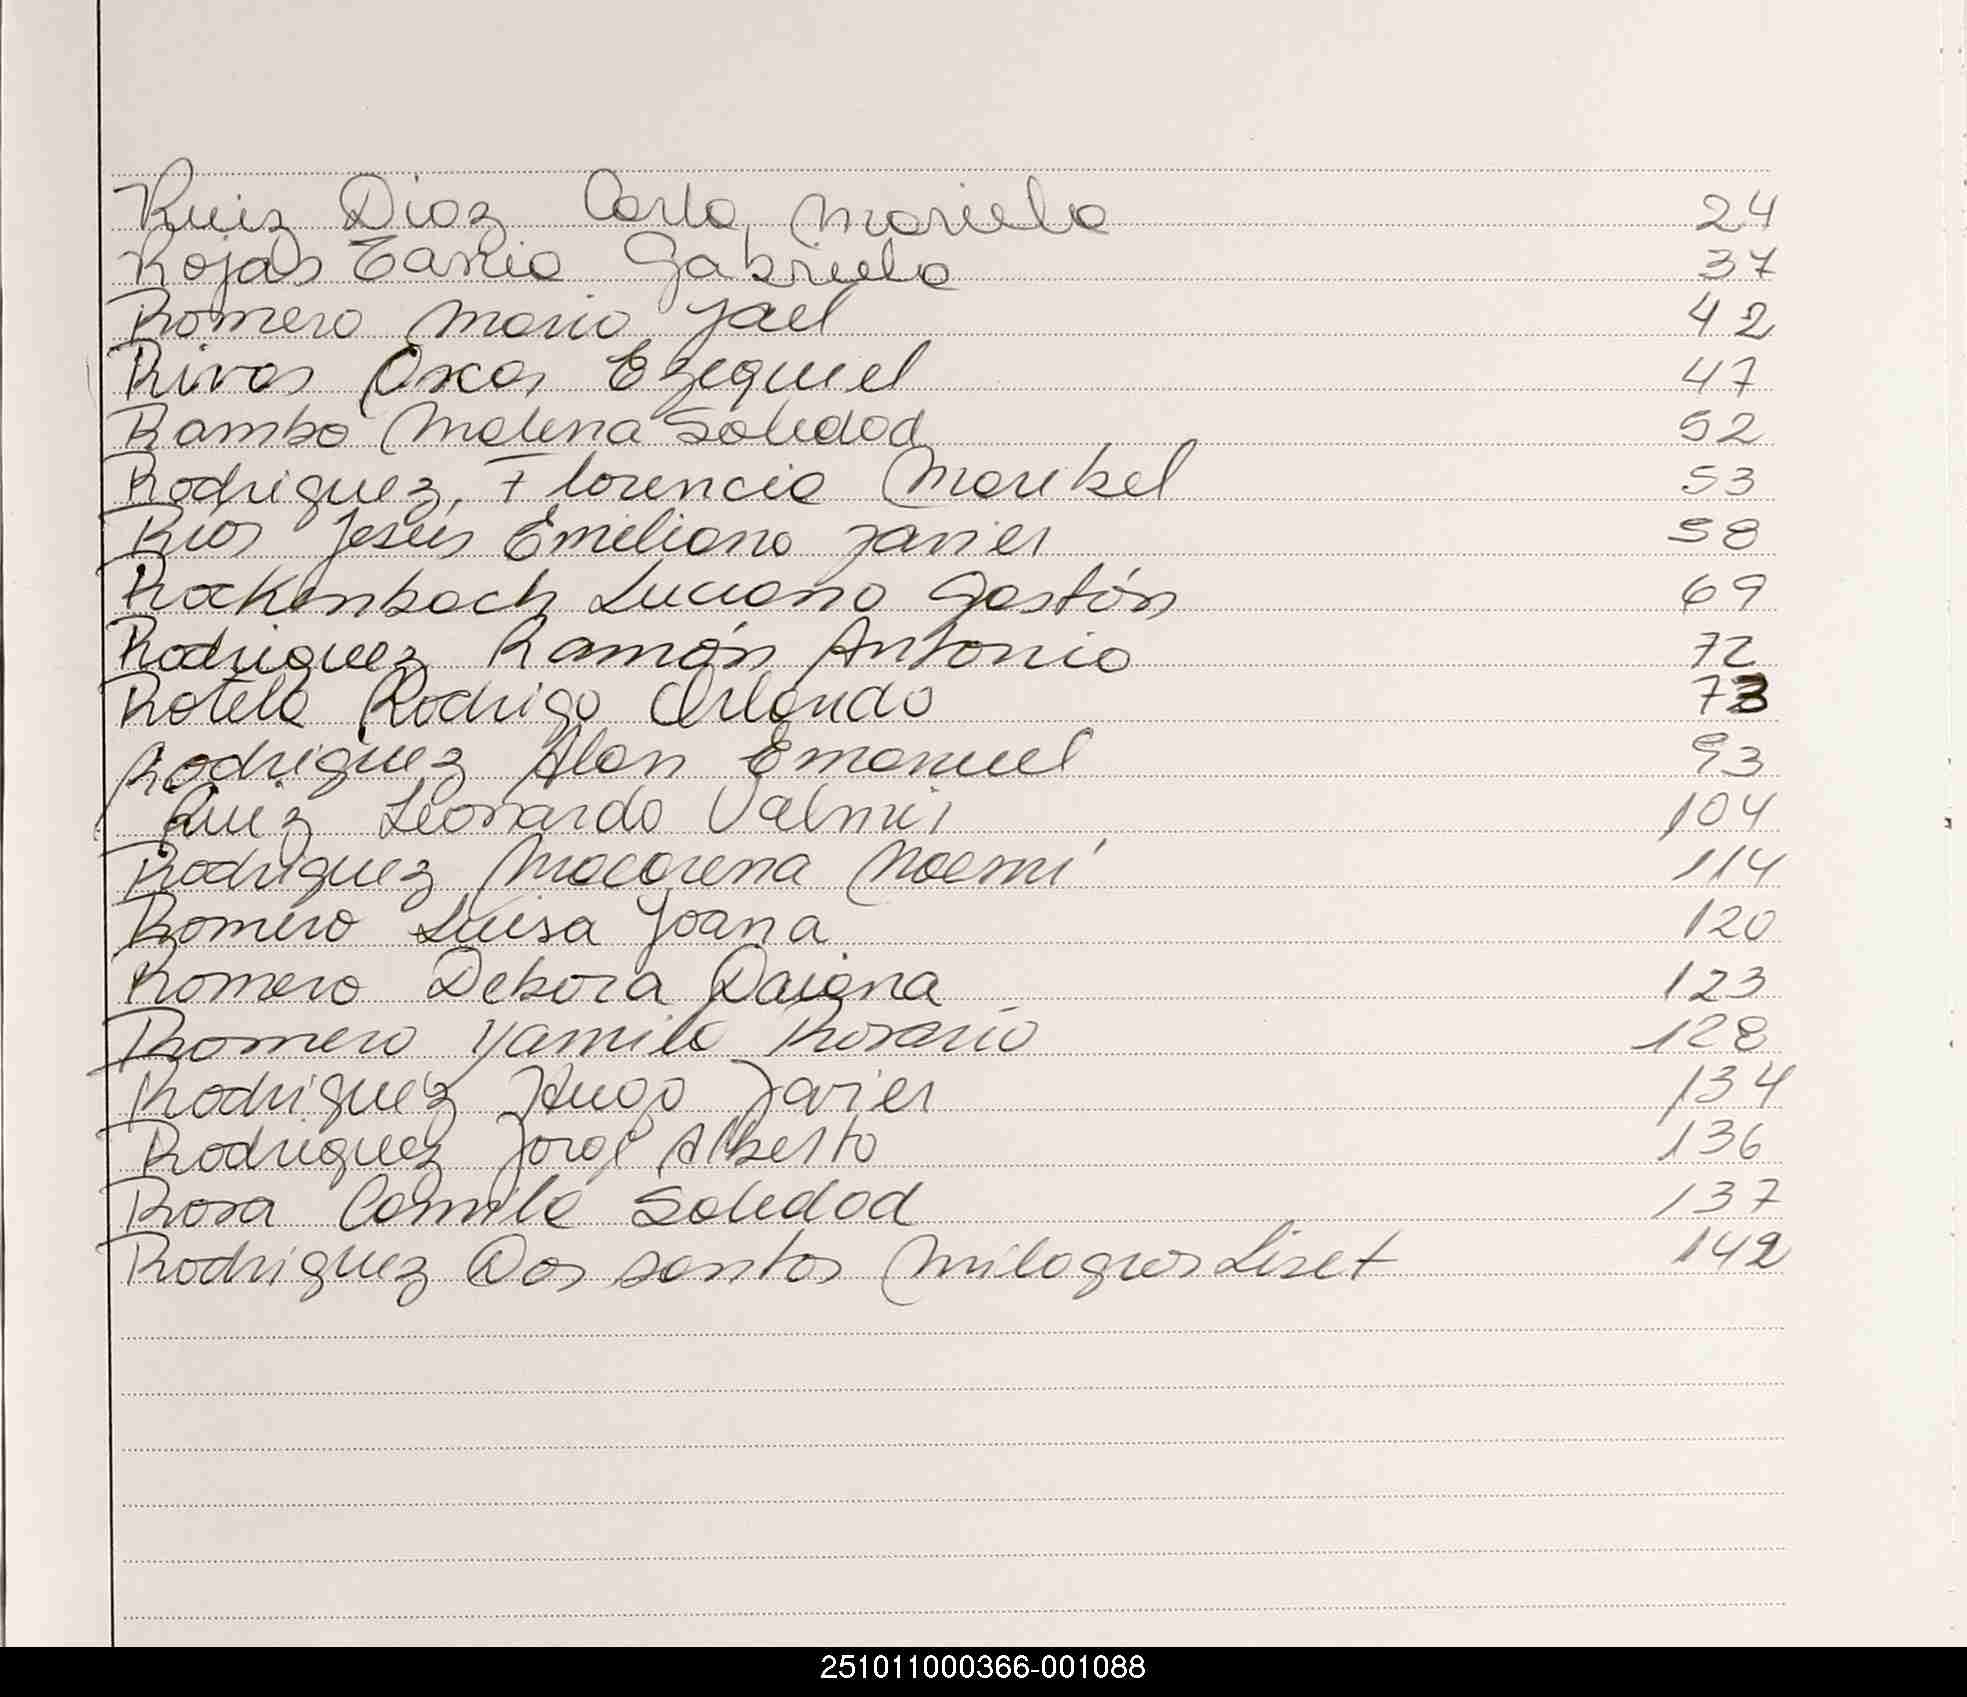 Ruiz Diaz Carla Mariela 24
Rojas Tania Gabriela 37
Romero Maria Jael 42
Rivas Oscar Ezequiel 47
Rambo Malena Soledad 52
Rodriguez, Florencia Maribel 53
Ríos Jesús Emiliano Javier 58
Rockenbach Luciano Gastón 69
Rodriguez Ramón Antonio 72
Rotela Rodrigo Orlando 73
Rodriguez Alan Emanuel 93
Ruiz Leonardo Valmir 104
Rodriguez Macarena Noemí 114
Romero Luisa Joana 120
Romero Debora Daiana 123
Romero Yamila Rosario 128
Rodriguez Hugo Javier 134
Rodriguez Jorge Alberto 136
Rosa Camila Soledad 137
Rodriguez Dos santos Milagros Liset 142
251011000366-001088